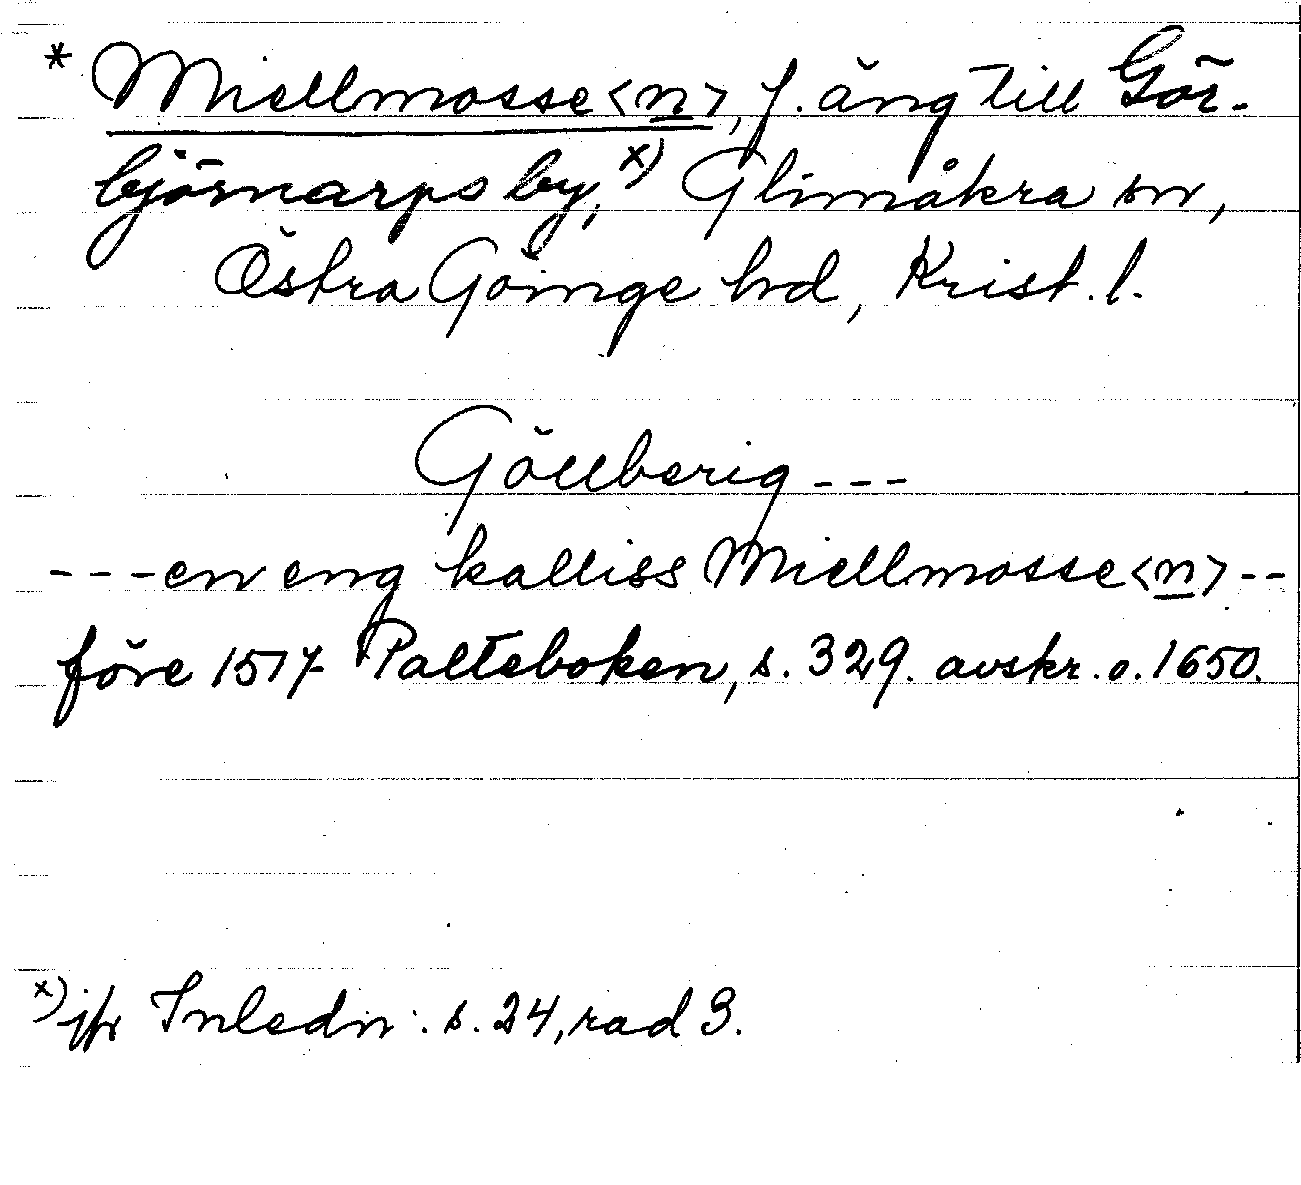 * Miellmosse<n>, f. äng till Gör-
björnarps by,x) Glimåkra sn,
Östra Göinge hd, Krist. l.
Göllberig ---
---en eng kalliss Miellmosse<n>--
före 1517 Palteboken, s. 329. avskr. o. 1650.
x) jfr Inledn. s. 24, rad 3.